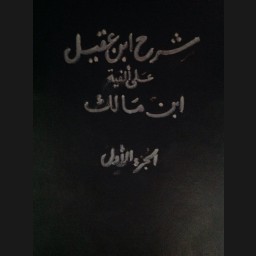 شرح ابن عقيل
على ألفية
ابن مالك
الجزء الأول